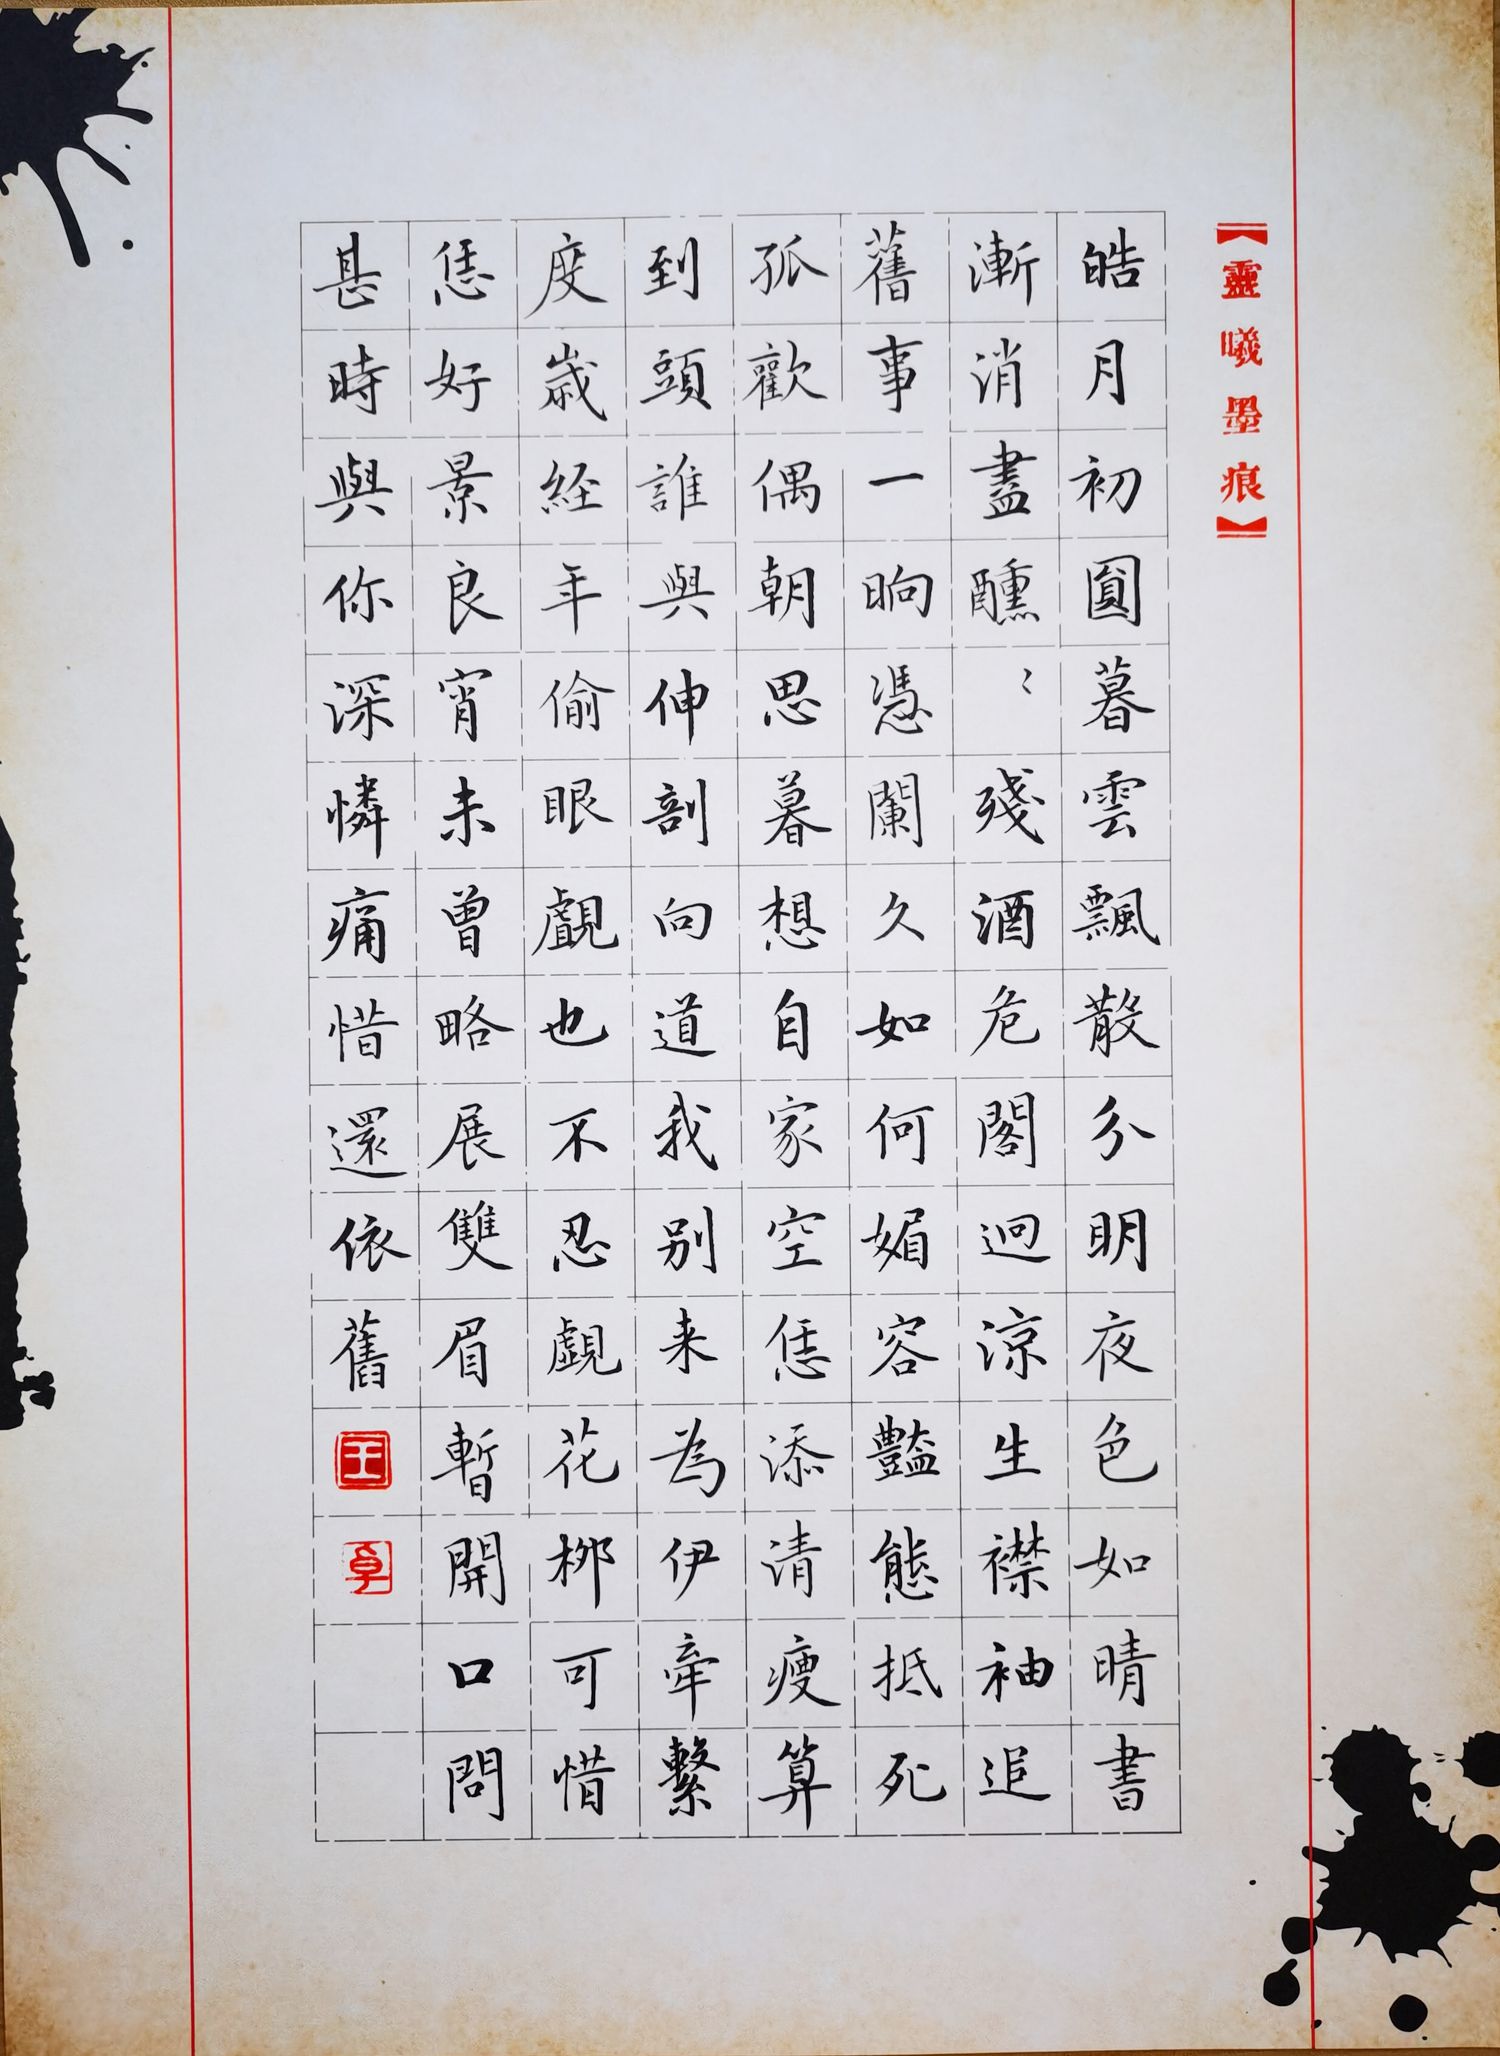 【靈曦墨痕】
皓月初圓暮雲飄散分明夜色如晴晝
漸消盡醺〻殘酒危閣迥涼生襟袖追
舊事一晌憑闌久如何媚容豔態抵死
孤歡偶朝思暮想自家空恁添清瘦算
到頭誰與伸剖向道我别来為伊牵繫
度歳経年偷眼覷也不忍覷花柳可惜
恁好景良宵未曾略展雙眉暫開口問
甚時與你深憐痛惜還依舊
王
卓